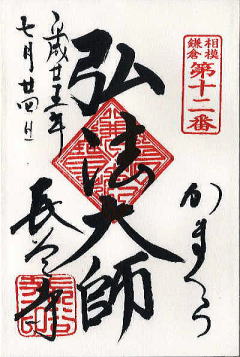 相模
鎌倉
第十二番
かまくら
弘法大師
長谷寺
平成廿五年
七月廿四日